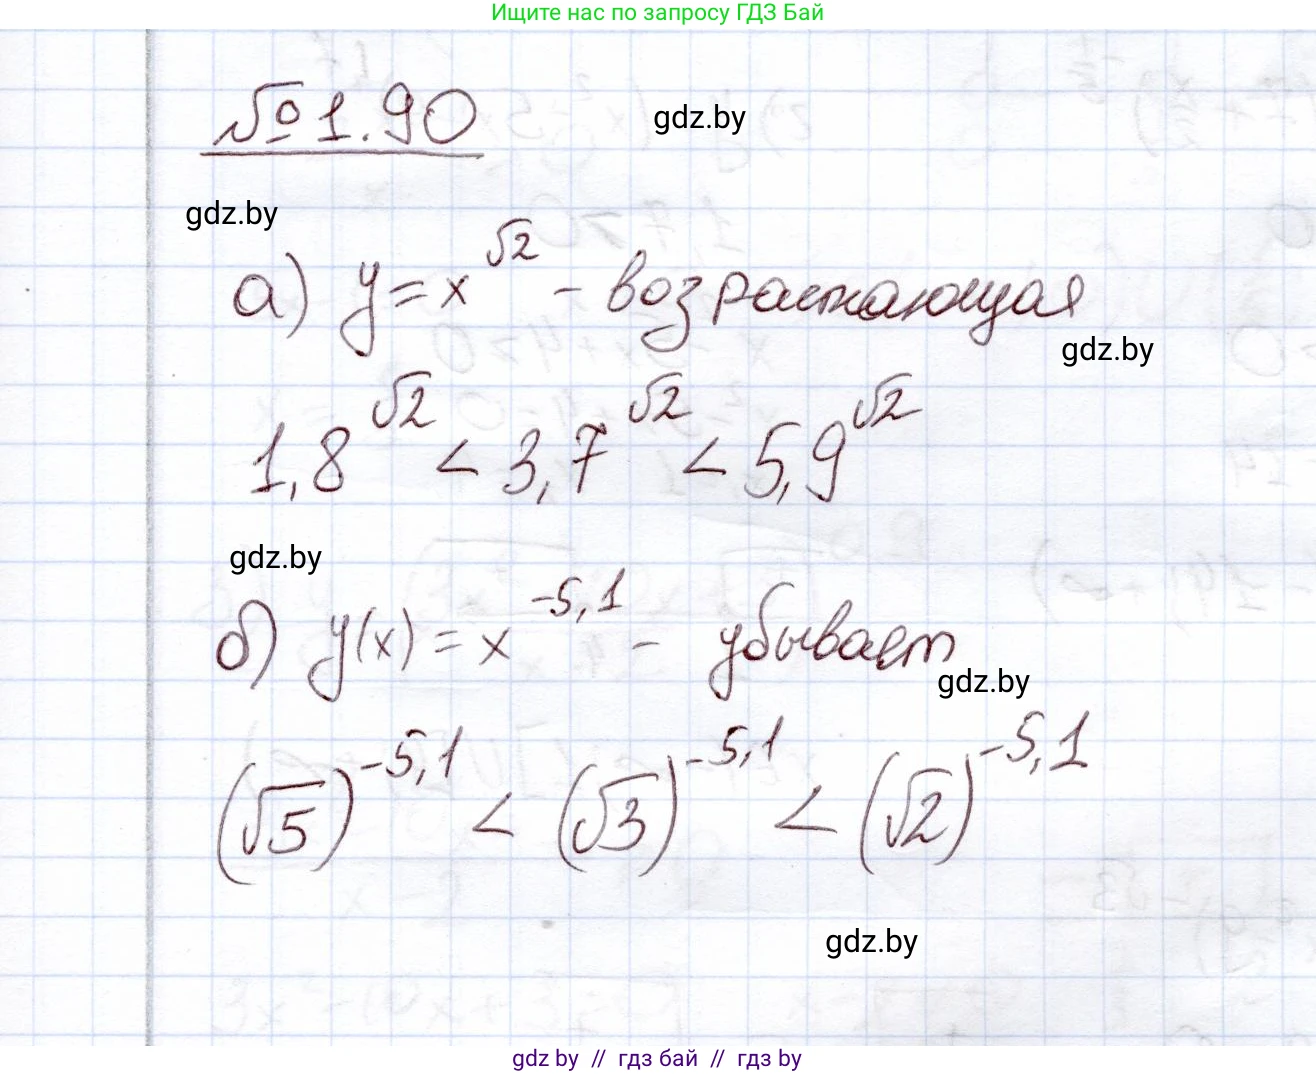 Ищите нас по запросу ГДЗ Бай
№ 1.90
gdz.by
gdz.by
а) y = x^√2 - возрастающая
gdz.by
1,8^√2 < 3,7^√2 < 5,9^√2
gdz.by
б) y(x) = x^-5,1 - убывает
gdz.by
(√5)^-5,1 < (√3)^-5,1 < (√2)^-5,1
gdz.by
gdz by // гдз бай // gdz by